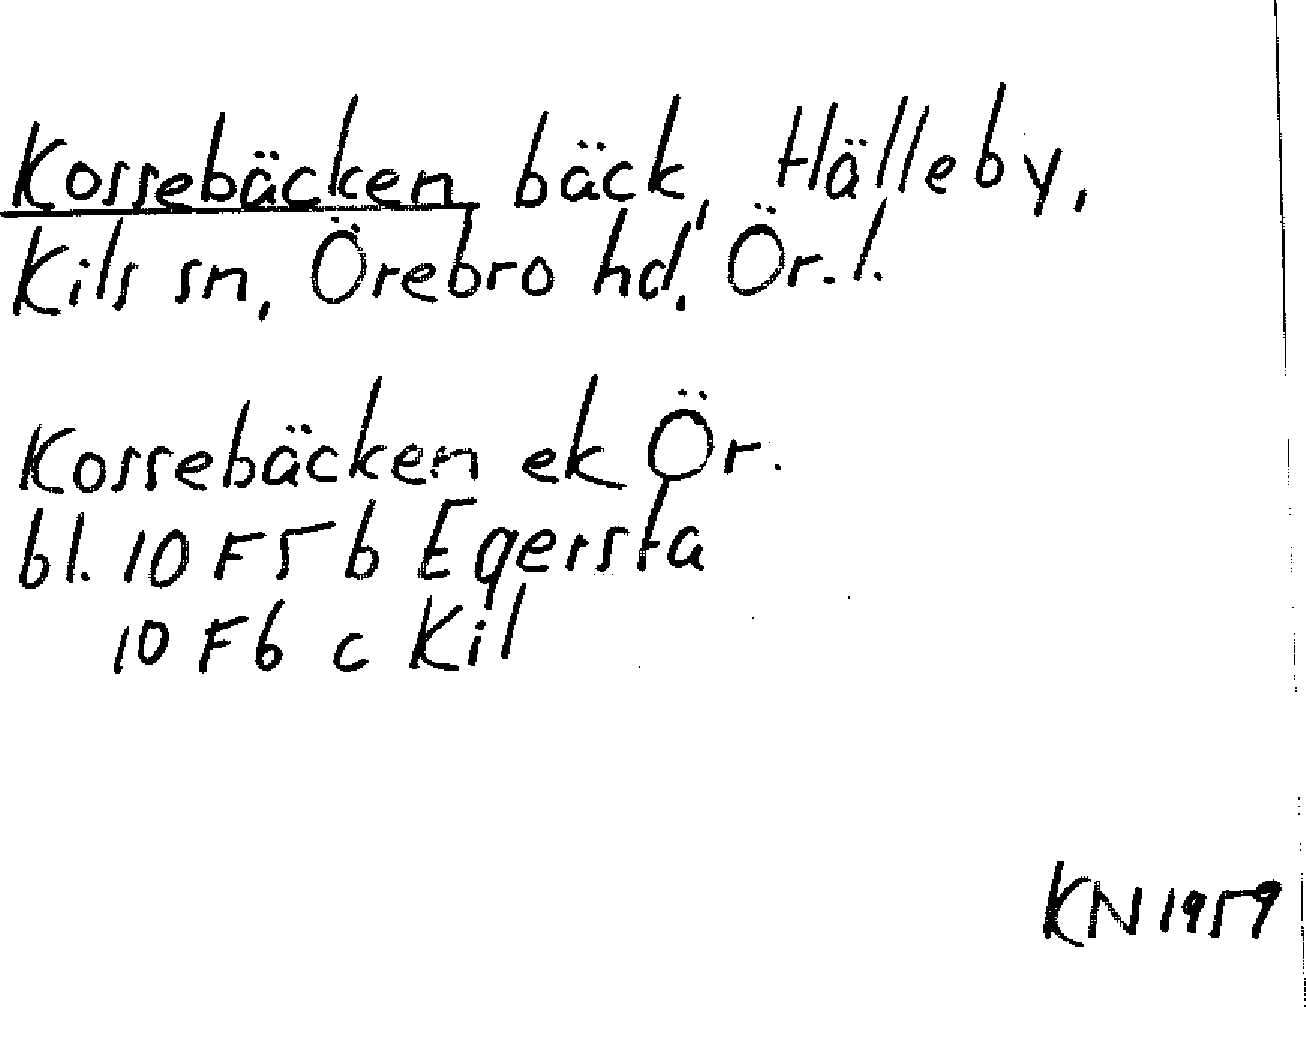 Kossebäcken bäck, Hälleby,
Kils sn, Örebro hd, Ör. l.
Kossebäcken ek Ör.
bl. 10 F 5 b Egersta
10 F 6 c Kil
KN 1959